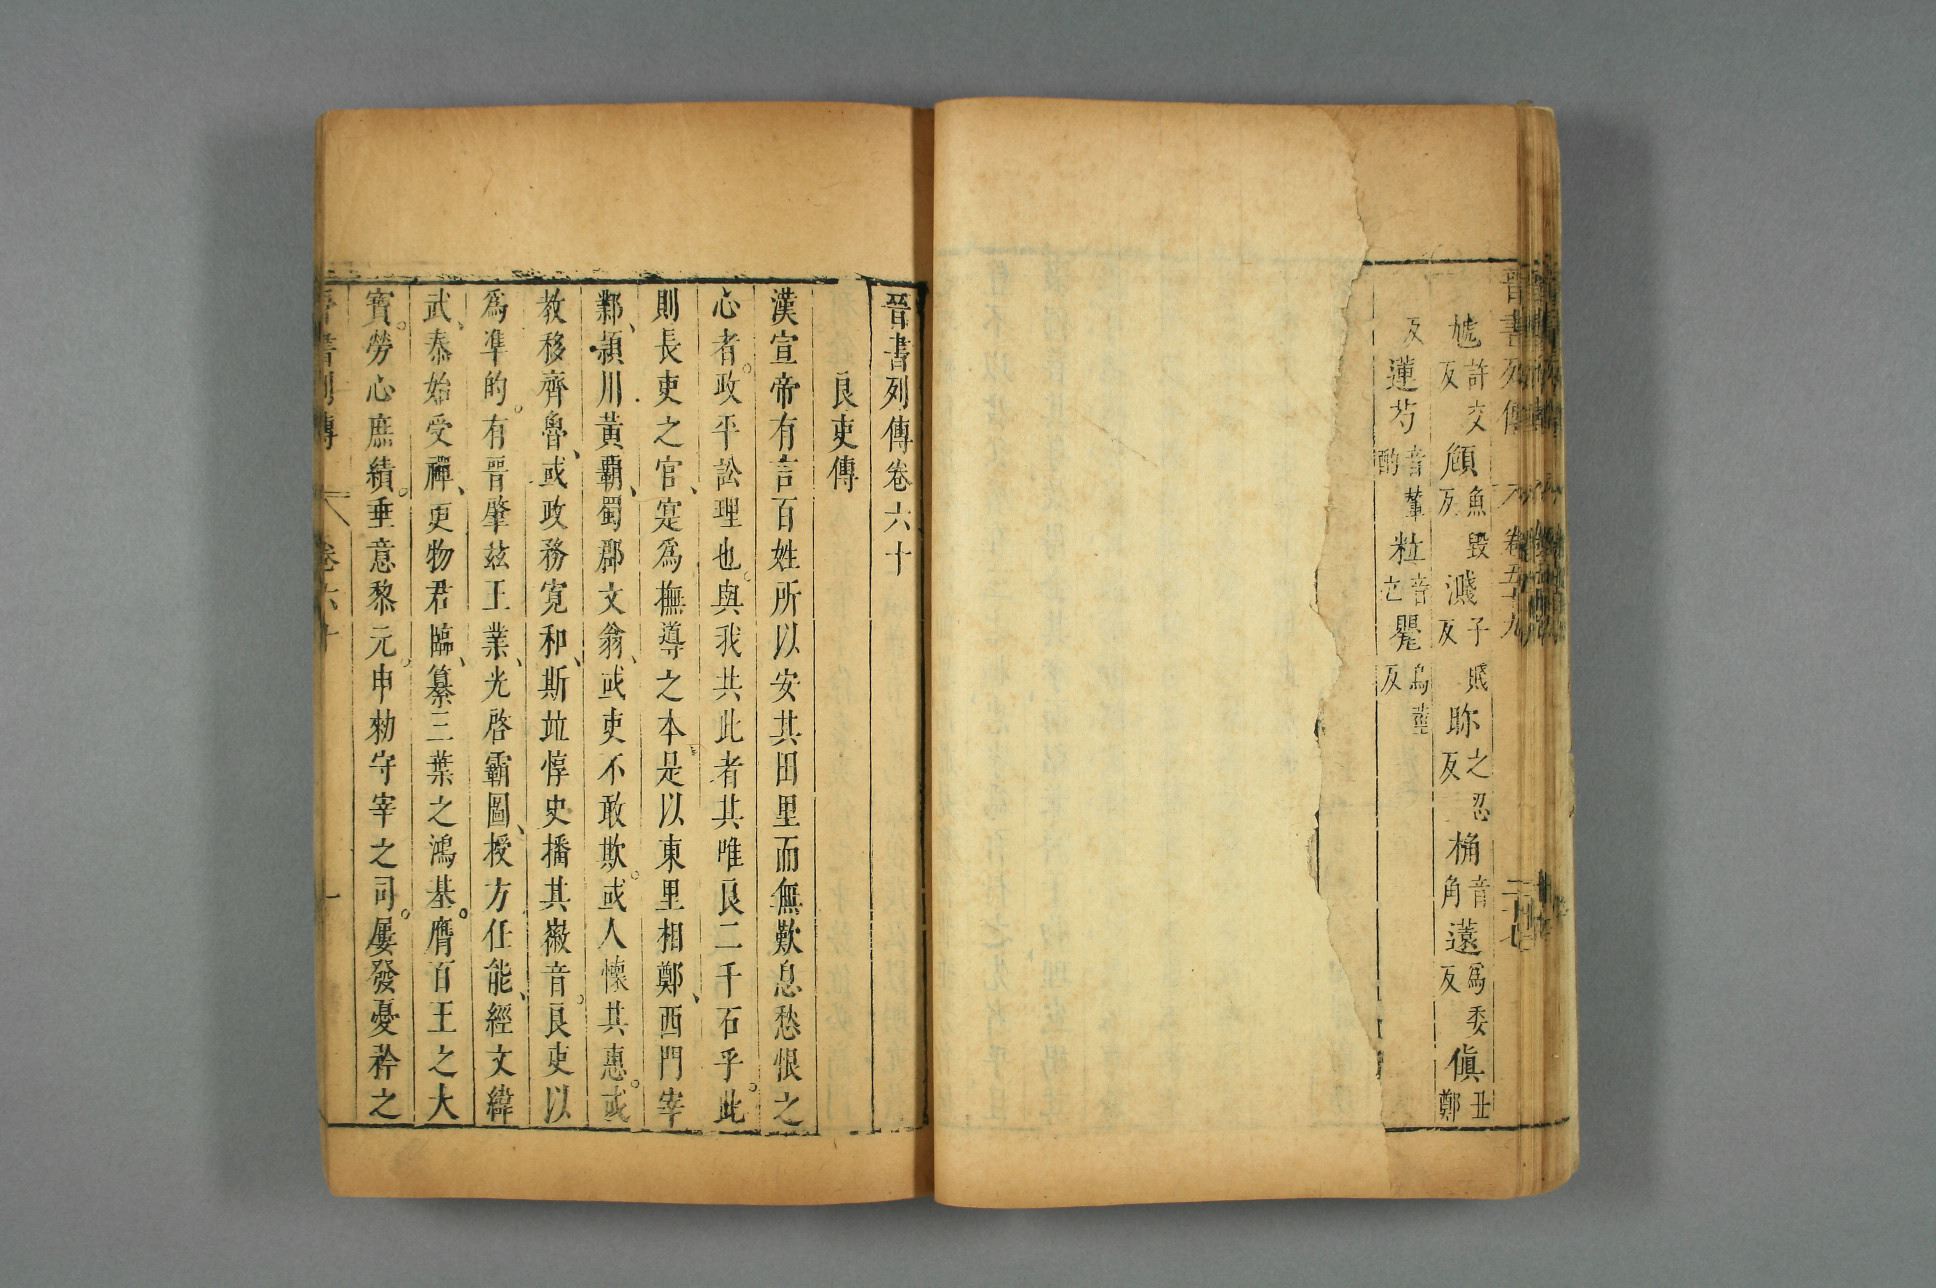 晉書列傳 卷五十九 二十七
虓許交反 頠魚毀反 濺子賤反 眕之忍反 桷音角 薳爲委反 傎丑鄭
反 蓮芍音酌 輦 粒音 立 鼂烏 反
晉書列傳卷六十
良吏傳
漢宣帝有言百姓所以安其田里而無歎息愁恨之
心者。政平訟理也。與我共此者其唯良二千石乎。此
則長吏之官、寔爲撫導之本。是以東里相鄭、西門宰
鄴、潁川黃霸、蜀郡文翁、或吏不敢欺。或人懷其惠。或
教移齊魯、或政務寬和、斯竝惇史播其徽音。良吏以
爲準的。有晉肇玆王業、光啓霸圖、授方任能、經文緯
武、泰始受禪、更物君臨、纂三葉之鴻基。膺百王之大
寳。勞心庶績。垂意黎元。申勑守宰之司。屢發憂矜之
晉書列傳 卷六十 一